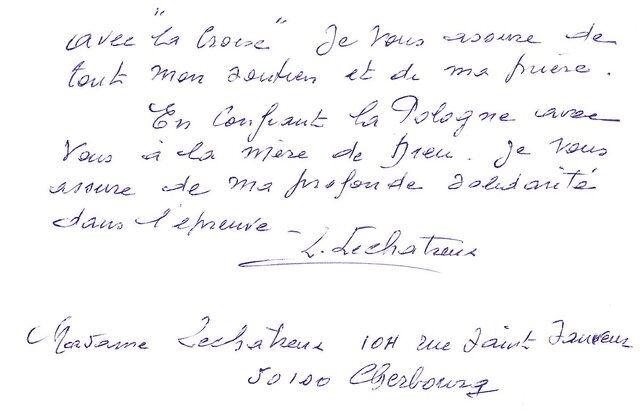 avec "la Croix" Je vous assure de
tout mon soutien et de ma prière.
En confiant la Pologne avec
Vous à la mère de Dieu. Je vous
assure de ma profonde solidarité
dans l'épreuve -
L. Lechatreux
Madame Lechatreux 104 rue Saint Sauveur
50100 Cherbourg